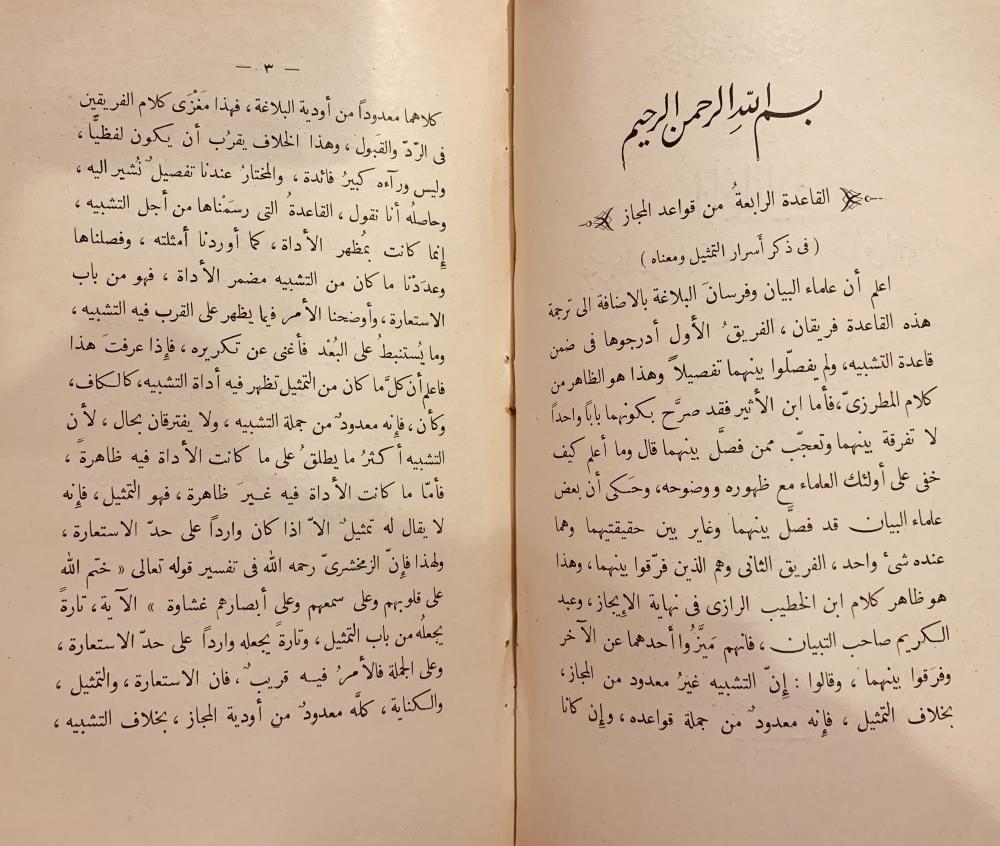 بسم الله الرحمن الرحيم
القاعدة الرابعةُ من قواعد المجاز
( فى ذكر أَسرار التمثيل ومعناه )
اعلم أن علماء البيان وفرسانَ البلاغة بالاضافة الى ترجمة
هذه القاعدة فريقان ، الفريقُ الأول أدرجوها فى ضمن
قاعدة التشبيه، ولم يفصّلوا بينهما تفصيلاً وهذا هو الظاهر من
كلام المطرزىّ، فأما ابن الأثير فقد صرَّح بكونهما باباً واحداً
لا تفرقة بينهما وتعجّب ممن فصلَّ بينهما قال وما أعلم كيف
خفى على أولئك العلماء مع ظهوره ووضوحه، وحَكى أن بعض
علماء البيان قد فصلَّ بينهما وغاير بين حقيقتيهما وهما
عنده شئ واحد ، الفريق الثانى وهم الذين فرّقوا بينهما، وهذا
هو ظاهر كلام ابن الخطيب الرازى فى نهاية الإيجاز، وعبد
الكريم صاحب التبيان ، فانهم مَيَّزُوا أحدهما عن الآخر
وفرَقوا بينهما ، وقالوا : إِنّ التشبيه غيرُ معدود من المجاز،
بخلاف التمثيل ، فإنه معدودٌ من جملة قواعده ، وإِن كانا
— ٣ —
كلاهما معدوداً من أودية البلاغة ، فهذا مَغْزَى كلام الفريقين
فى الرّدّ والقَبول ، وهذا الخلاف يقرُب أن يكون لفظيًّا ،
وليس ورآءه كبيرُ فائدة ، والمختارُ عندنا تفصيلٌ نُشير اليه ،
وحاصلُه أنا نقول ، القاعدةُ التى رسَمْناها من أجل التشبيه ،
إِنما كانت بمُظهر الأداة ، كما أوردنا أمثلته ، وفصلناها
وعدَدْنا ما كان من التشبيه مضمر الأداة ، فهو من باب
الاستعارة، وأوضحنا الأمر فيما يظهر على القرب فيه التشبيه ،
وما يُستنبطُ على البُعْد فأغنى عن تكريره ، فإذا عرفتَ هذا
فاعلم أن كلَّ ما كان من التمثيل تظهر فيه أداة التشبيه، كالكاف،
وكأن ، فإنه معدودٌ من جملة التشبيه ، ولا يفترقان بحال ، لأن
التشبيه أكثرُ ما يطلقُ على ما كانت الأداة فيه ظاهرةً ،
فأمّا ما كانت الأداة فيه غيرَ ظاهرة ، فهو التمثيل ، فإنه
لا يقال له تمثيلٌ الاّ اذا كان وارداً على حدّ الاستعارة ،
ولهذا فإنّ الزمخشرىّ رحمه الله فى تفسير قوله تعالى « ختم الله
على قلوبهم وعلى سمعهم وعلى أبصارهم غشاوة » الآية ، تارةً
يجعلُه من باب التمثيل ، وتارةً يجعله وارداً على حدّ الاستعارة ،
وعلى الجملة فالأمرُ فيه قريبٌ ، فان الاستعارة ، والتمثيل ،
والكناية ، كلَّه معدودٌ من أودية المجاز ، بخلاف التشبيه ،